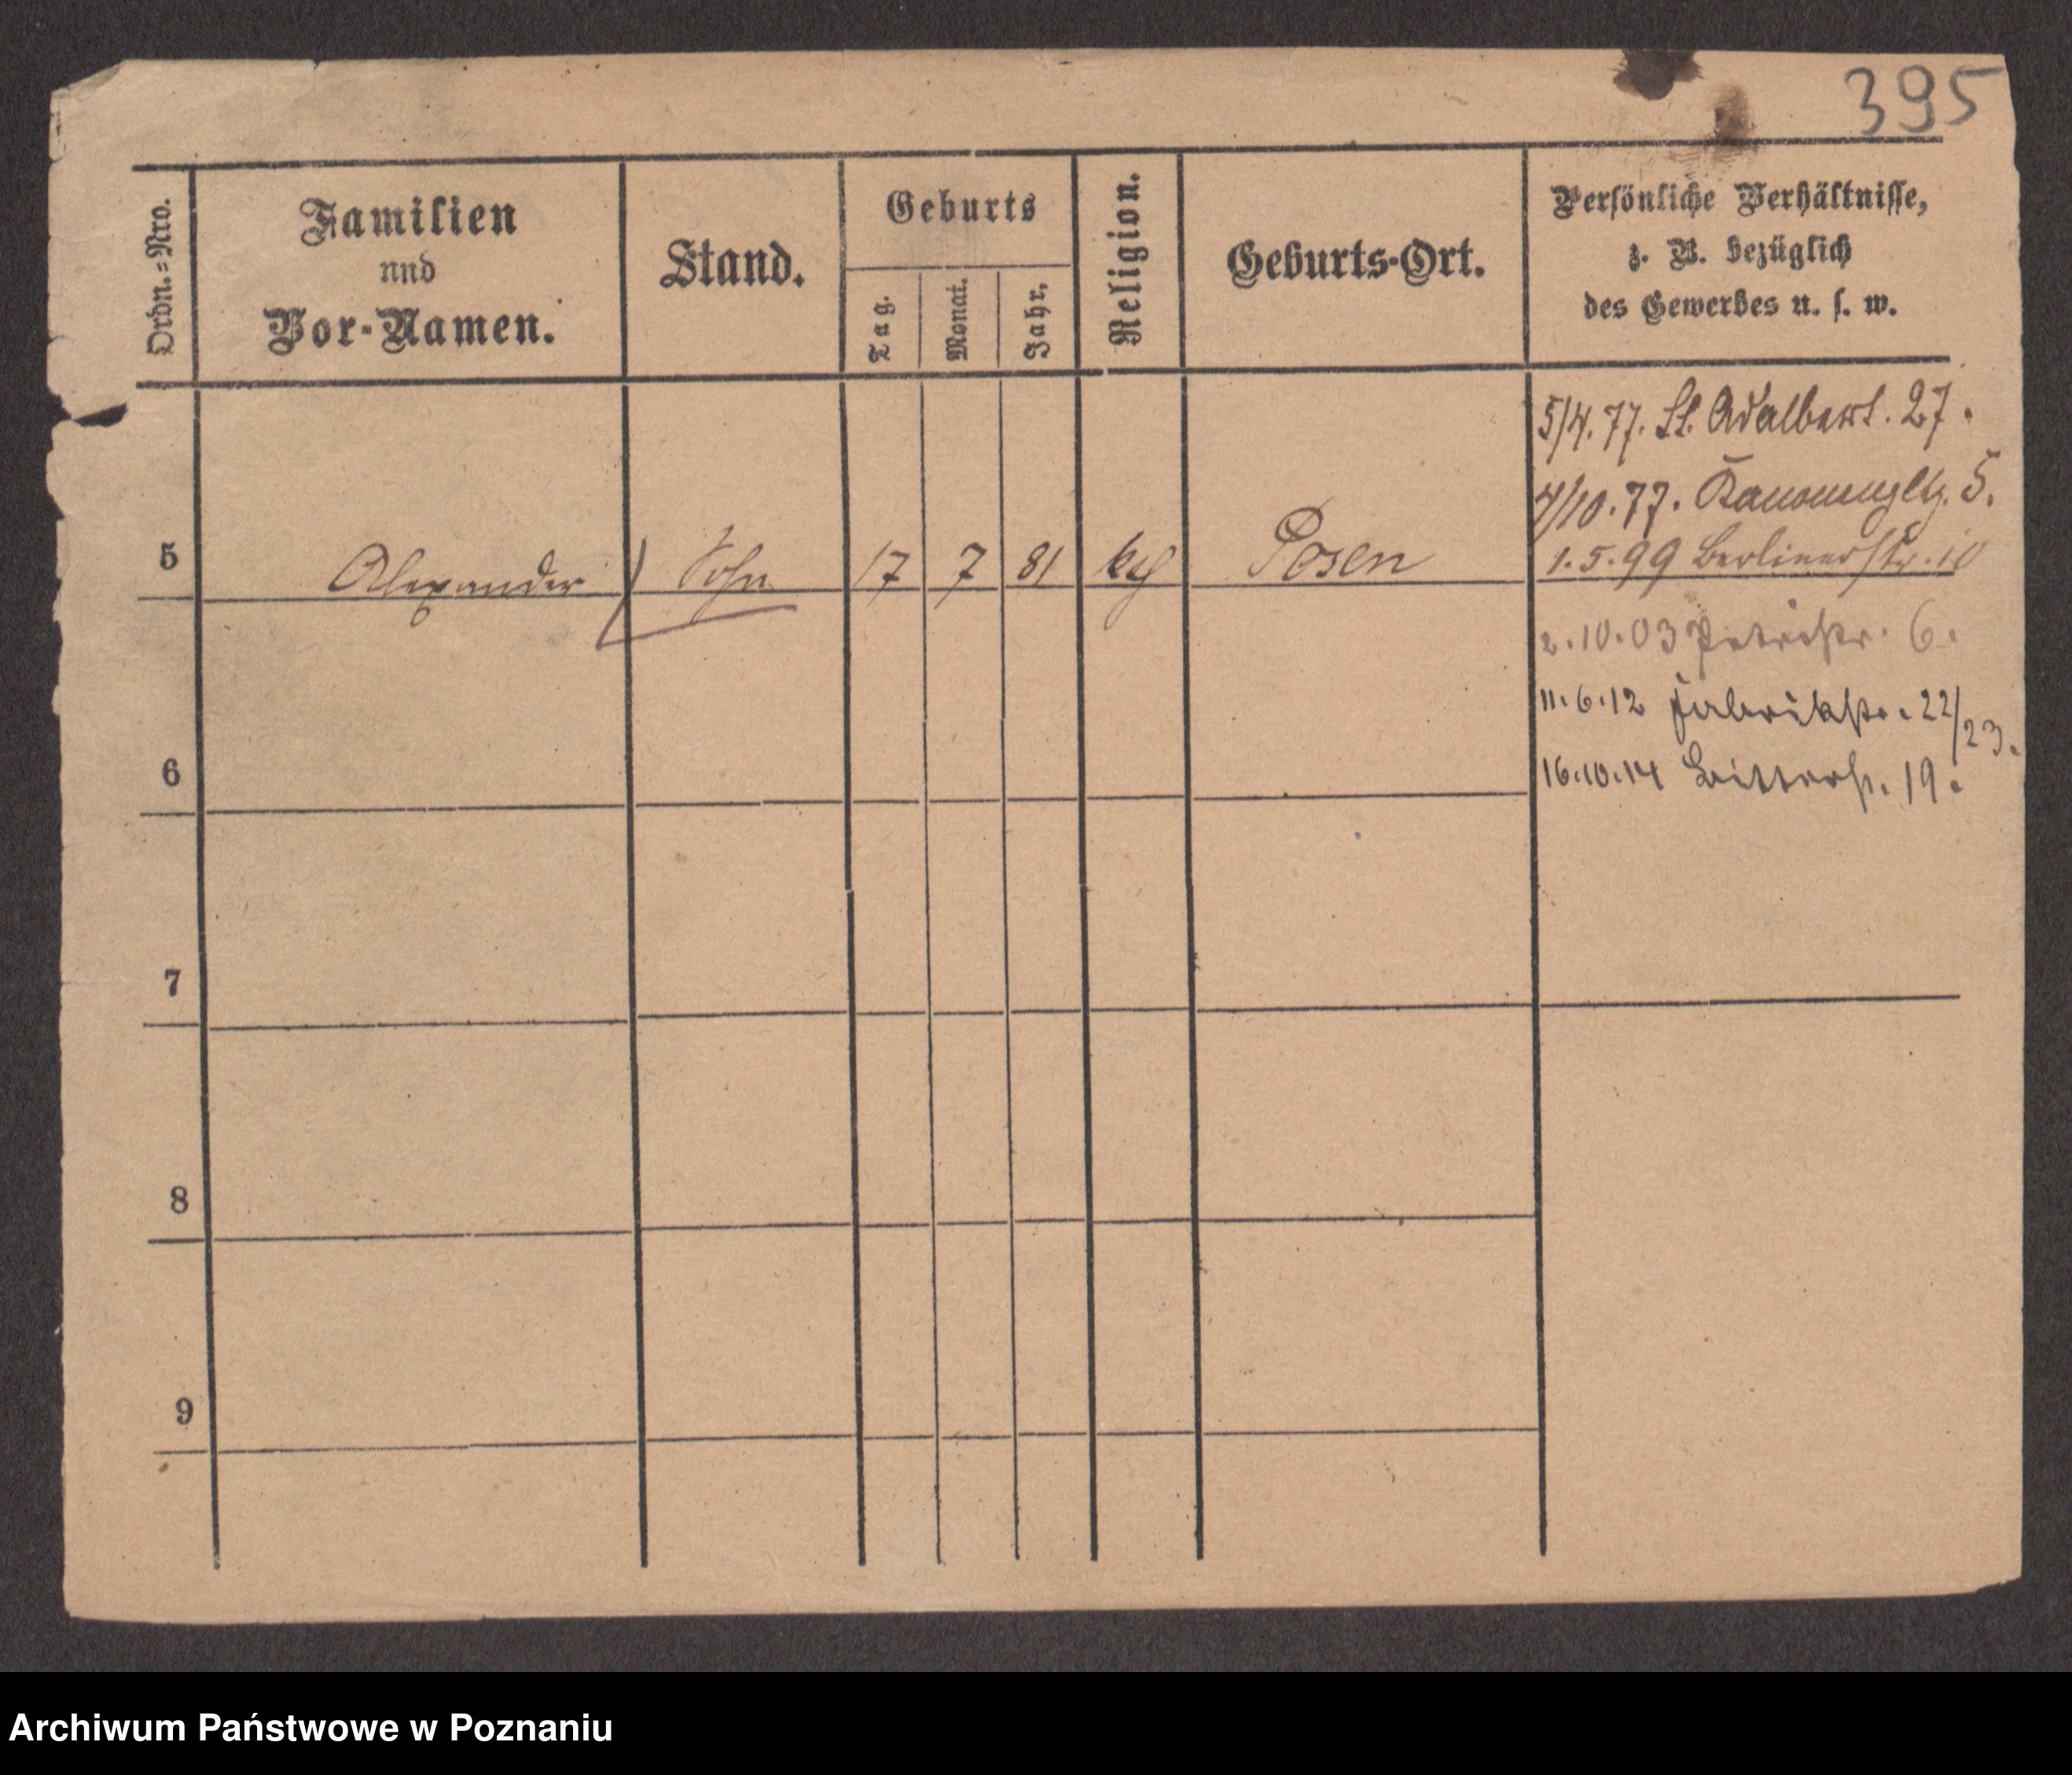 395
Ordn.=Nro.
Familien
nnd
Vor-Namen.
Stand.
Geburts
Tag.
Monat.
Jahr.
Religion.
Geburts-Ort.
Persönliche Verhältnisse,
z. B. bezüglich
des Gewerbes u. s. w.
5/4. 77. St. Adalbert. 27.
4/10. 77. 5.
1. 5. 99 Berlinerstr. 10
5 Alexander Sohn 17 7 81 kth Posen
2. 10. 03 Petristr. 6.
11. 6. 12 Fabrikstr. 22/23.
16. 10. 14 Ritterstr. 19.
6
7
8
9
Archiwum Państwowe w Poznaniu